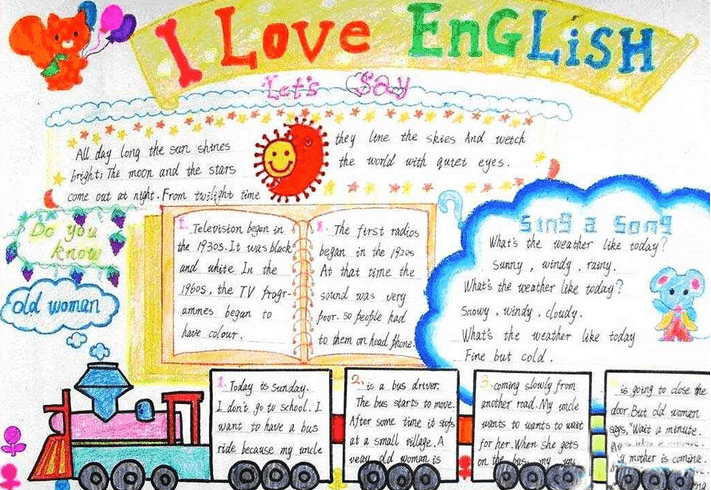 I Love EnGLiSH
Let's Say
All day long the sun shines
bright; The moon and the stars
come out at night. From twilight time
they line the skies And wetch
the world with quiet eyes.
Do you
know
old woman
1. Television began in
the 1930s. It was black
and white In the
1960s, the TV progr-
ammes began to
have colour.
The first radios
began in the 1920s
At that time the
sound was very
poor. so people had
to them on head phone.
Sing a Song
What's the weather like today?
Sunny, windy, rainy.
What's the weather like today?
Snowy, windy, cloudy.
What's the weather like today
Fine but cold.
1. Today is Sunday.
I don't go to school. I
want to have a bus
ride because my uncle
2. is a bus driver.
The bus starts to move.
After some time it stops
at a small village. A
very old woman is
3. coming slowly from
another road. My uncle
wants to wants to wait
for her. When she gets
on the bus my
is going to close the
door. But old women
says, "Wait a minute.
mother is comine.